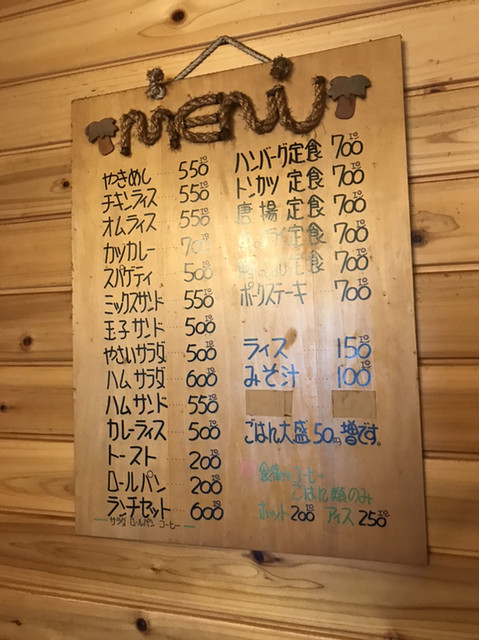 MENU
やきめし 550
チキンライス 550
オムライス 550
カツカレー 700
スパゲティ 500
ミックスサンド 550
玉子サンド 500
やさいサラダ 500
ハムサラダ 600
ハムサンド 550
カレーライス 500
トースト 200
ロールパン 200
ランチセット 600
サラダ ロールパン コーヒー
ハンバーグ定食 700
トンカツ定食 700
唐揚定食 700
定食 700
定食 700
ポークステーキ 700
ライス 150
みそ汁 100
ごはん大盛50円増です。
食後のコーヒー
ごはん類のみ
ホット 200 アイス 250